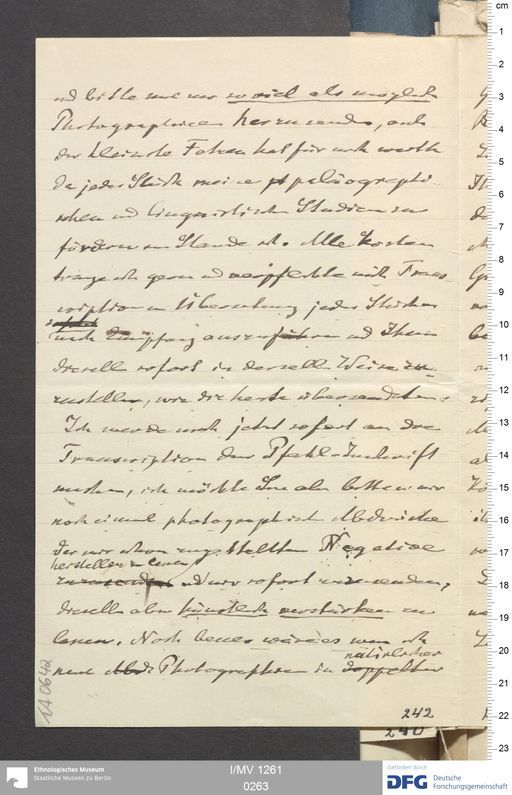 und bitte mir nur so viel als möglich
Photographieen herzusenden, auch
der kleinste Fetzen hat für mich werth
da jedes Stück meine paläographi
schen und linguistischen Studien zu
fördern im Stande ist. Alle Kosten
trage ich gern und verpflichte mich Trans-
cription u Übersetzung jedes Stückes
nach Empfang auszuführen und Ihnen
dieselbe sofort in derselben Weise
zustellen, wie die heute übersandten.
Ich werde mich jetzt sofort an die
Transcription der Pfahl-Inschrift
machen, ich möchte Sie aber bitten mir
noch einmal photographische Abdrücke
der mir schon zugestellten Negative
herstellen zu lassen
und mir sofort zu senden,
dieselben aber künstlich verstärken zu
lassen. Noch besser wäre es wenn ich
natürlicher
neue Photographien in doppelter
242
240
1A 0642
cm
1
2
3
4
5
6
7
8
9
10
11
12
13
14
15
16
17
18
19
20
21
22
23
Ethnologisches Museum
Staatliche Museen zu Berlin
I/MV 1261
0263
Gefördert durch
DFG Deutsche
Forschungsgemeinschaft